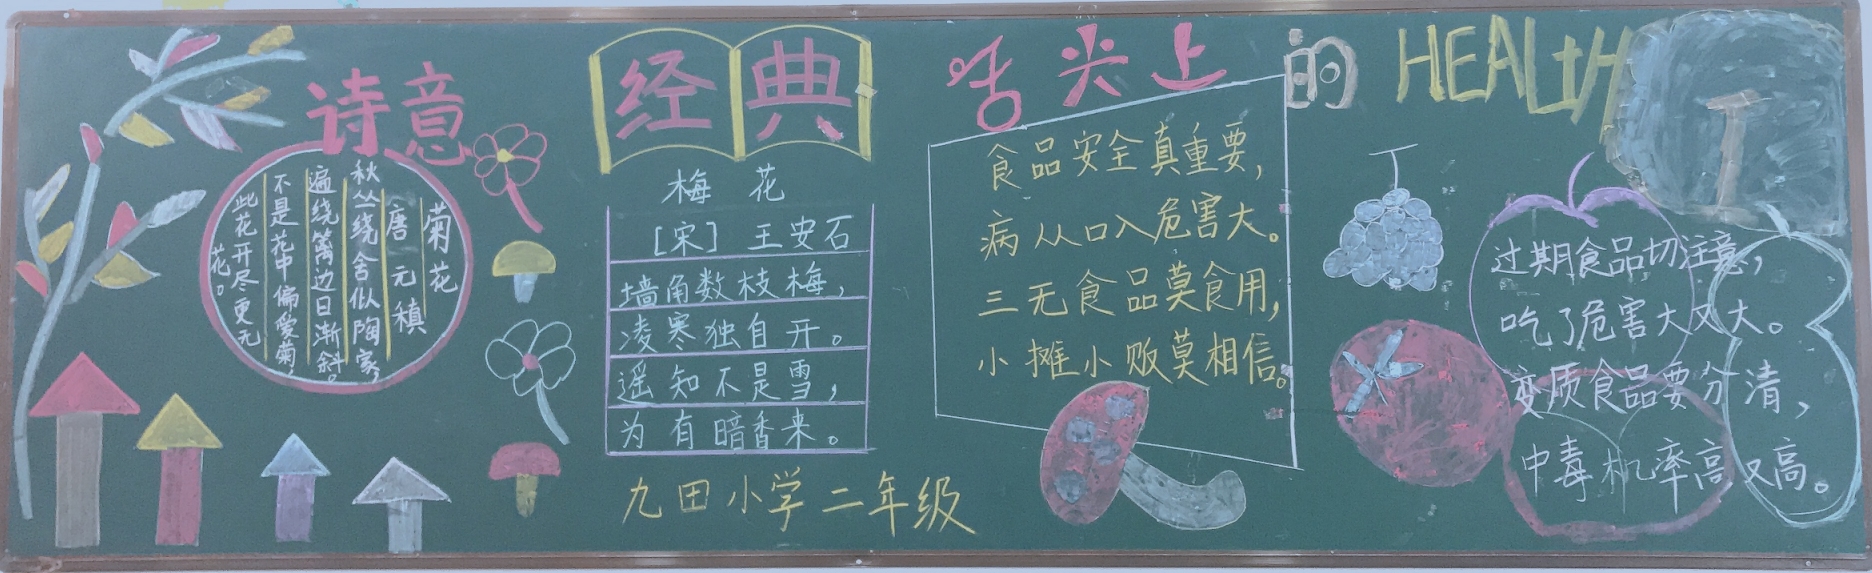 诗意
菊花
唐 元稹
秋丛绕舍似陶家，
遍绕篱边日渐斜。
不是花中偏爱菊
此花开尽更无
花。
经典
梅花
[宋] 王安石
墙角数枝梅，
凌寒独自开。
遥知不是雪，
为有暗香来。
九田小学二年级
舌尖上的HEALtH
食品安全真重要，
病从口入危害大。
三无食品莫食用，
小摊小贩莫相信。
过期食品切注意，
吃了危害大又大。
变质食品要分清，
中毒机率高又高。